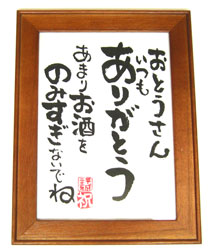 おとうさん
いつも
ありがとう
あまりお酒を
のみすぎないでね
祝